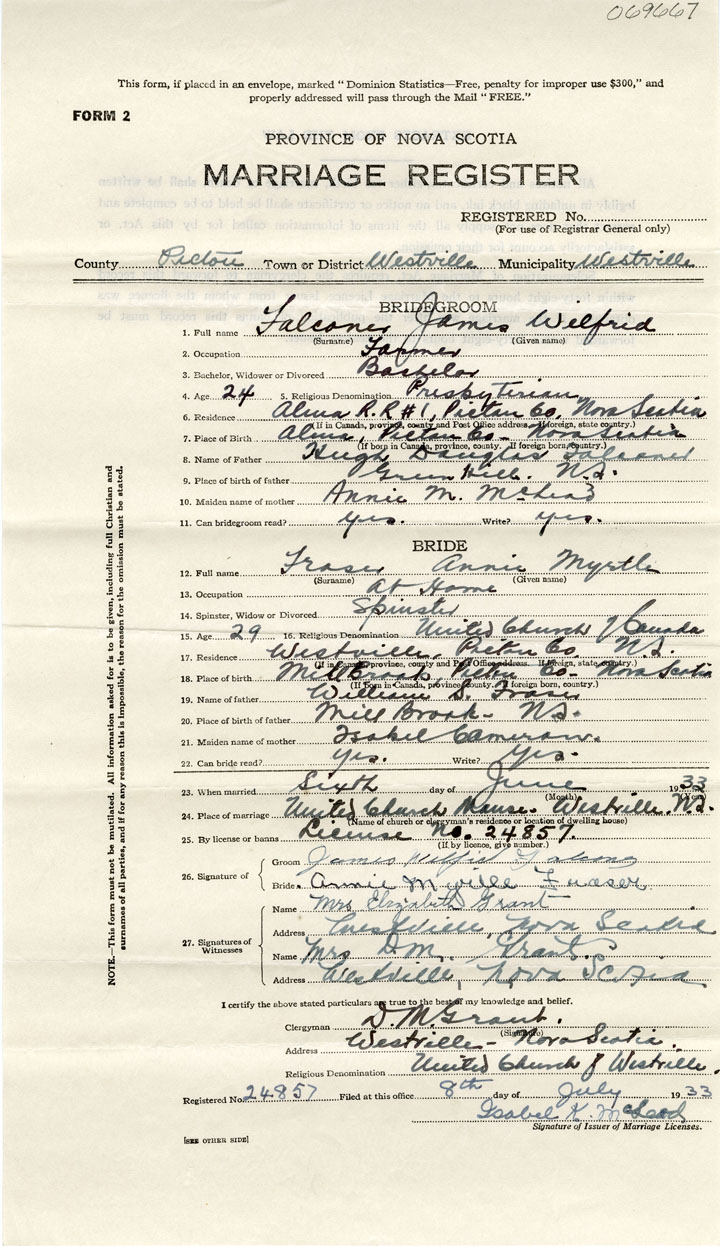 069667
This form, if placed in an envelope, marked “Dominion Statistics—Free, penalty for improper use $300,” and
properly addressed will pass through the Mail “FREE.”
FORM 2
PROVINCE OF NOVA SCOTIA
MARRIAGE REGISTER
REGISTERED No.
(For use of Registrar General only)
County Pictou Town or District Westville Municipality Westville
BRIDEGROOM
1. Full name Falconer James Welfrid
(Surname) (Given name)
2. Occupation Farmer
3. Bachelor, Widower or Divorced Bachelor
4. Age 24 5. Religious Denomination Presbyterian
6. Residence Alma R.R #1, Pictou Co, Nova Scotia
(If in Canada, province, county and Post Office address. If foreign, state country.)
7. Place of Birth Alma, Pictou Co. Nova Scotia
(If born in Canada, province, county. If foreign born, country.)
8. Name of Father Hugh Douglas Falconer
9. Place of birth of father Green Hill. N.S.
10. Maiden name of mother Annie M. McLeod
11. Can bridegroom read? yes. Write? yes.
BRIDE
12. Full name Fraser Annie Myrtle
(Surname) (Given name)
13. Occupation at Home
14. Spinster, Widow or Divorced Spinster
15. Age 29 16. Religious Denomination United Church of Canada
17. Residence Westville, Pictou Co. N.S.
(If in Canada, province, county and Post Office address. If foreign, state country.)
18. Place of birth Millbrook, Pictou Co. Nova Scotia
(If born in Canada, province, county. If foreign born, country.)
19. Name of father William S. Fraser
20. Place of birth of father Mill Brook- N.S.
21. Maiden name of mother Isabel Cameron.
22. Can bride read? Yes. Write? Yes.
23. When married Sixth day of June 1933
(Month)
24. Place of marriage United Church Manse. Westville. N.S.
(Name of church or clergyman's residence or location of dwelling house)
25. By license or banns License No. 24857.
(If by licence, give number.)
26. Signature of
Groom James Welfrid Falconer
Bride. Annie Myrtle Fraser
27. Signatures of Witnesses
Name Mrs Elizabeth Grant
Address Westville, Nova Scotia
Name Mrs D.M. Grant
Address Westville, Nova Scotia
I certify the above stated particulars are true to the best of my knowledge and belief.
Clergyman D. M. Grant.
(Signature)
Address Westville- Nova Scotia.
Religious Denomination United Church of Westville.
Registered No. 24857 Filed at this office 8th day of July 1933
Isabel K. McLeod
Signature of Issuer of Marriage Licenses.
[SEE OTHER SIDE]
NOTE.—This form must not be mutilated. All information asked for is to be given, including full Christian and
surnames of all parties, and if for any reason this is impossible, the reason for the omission must be stated.